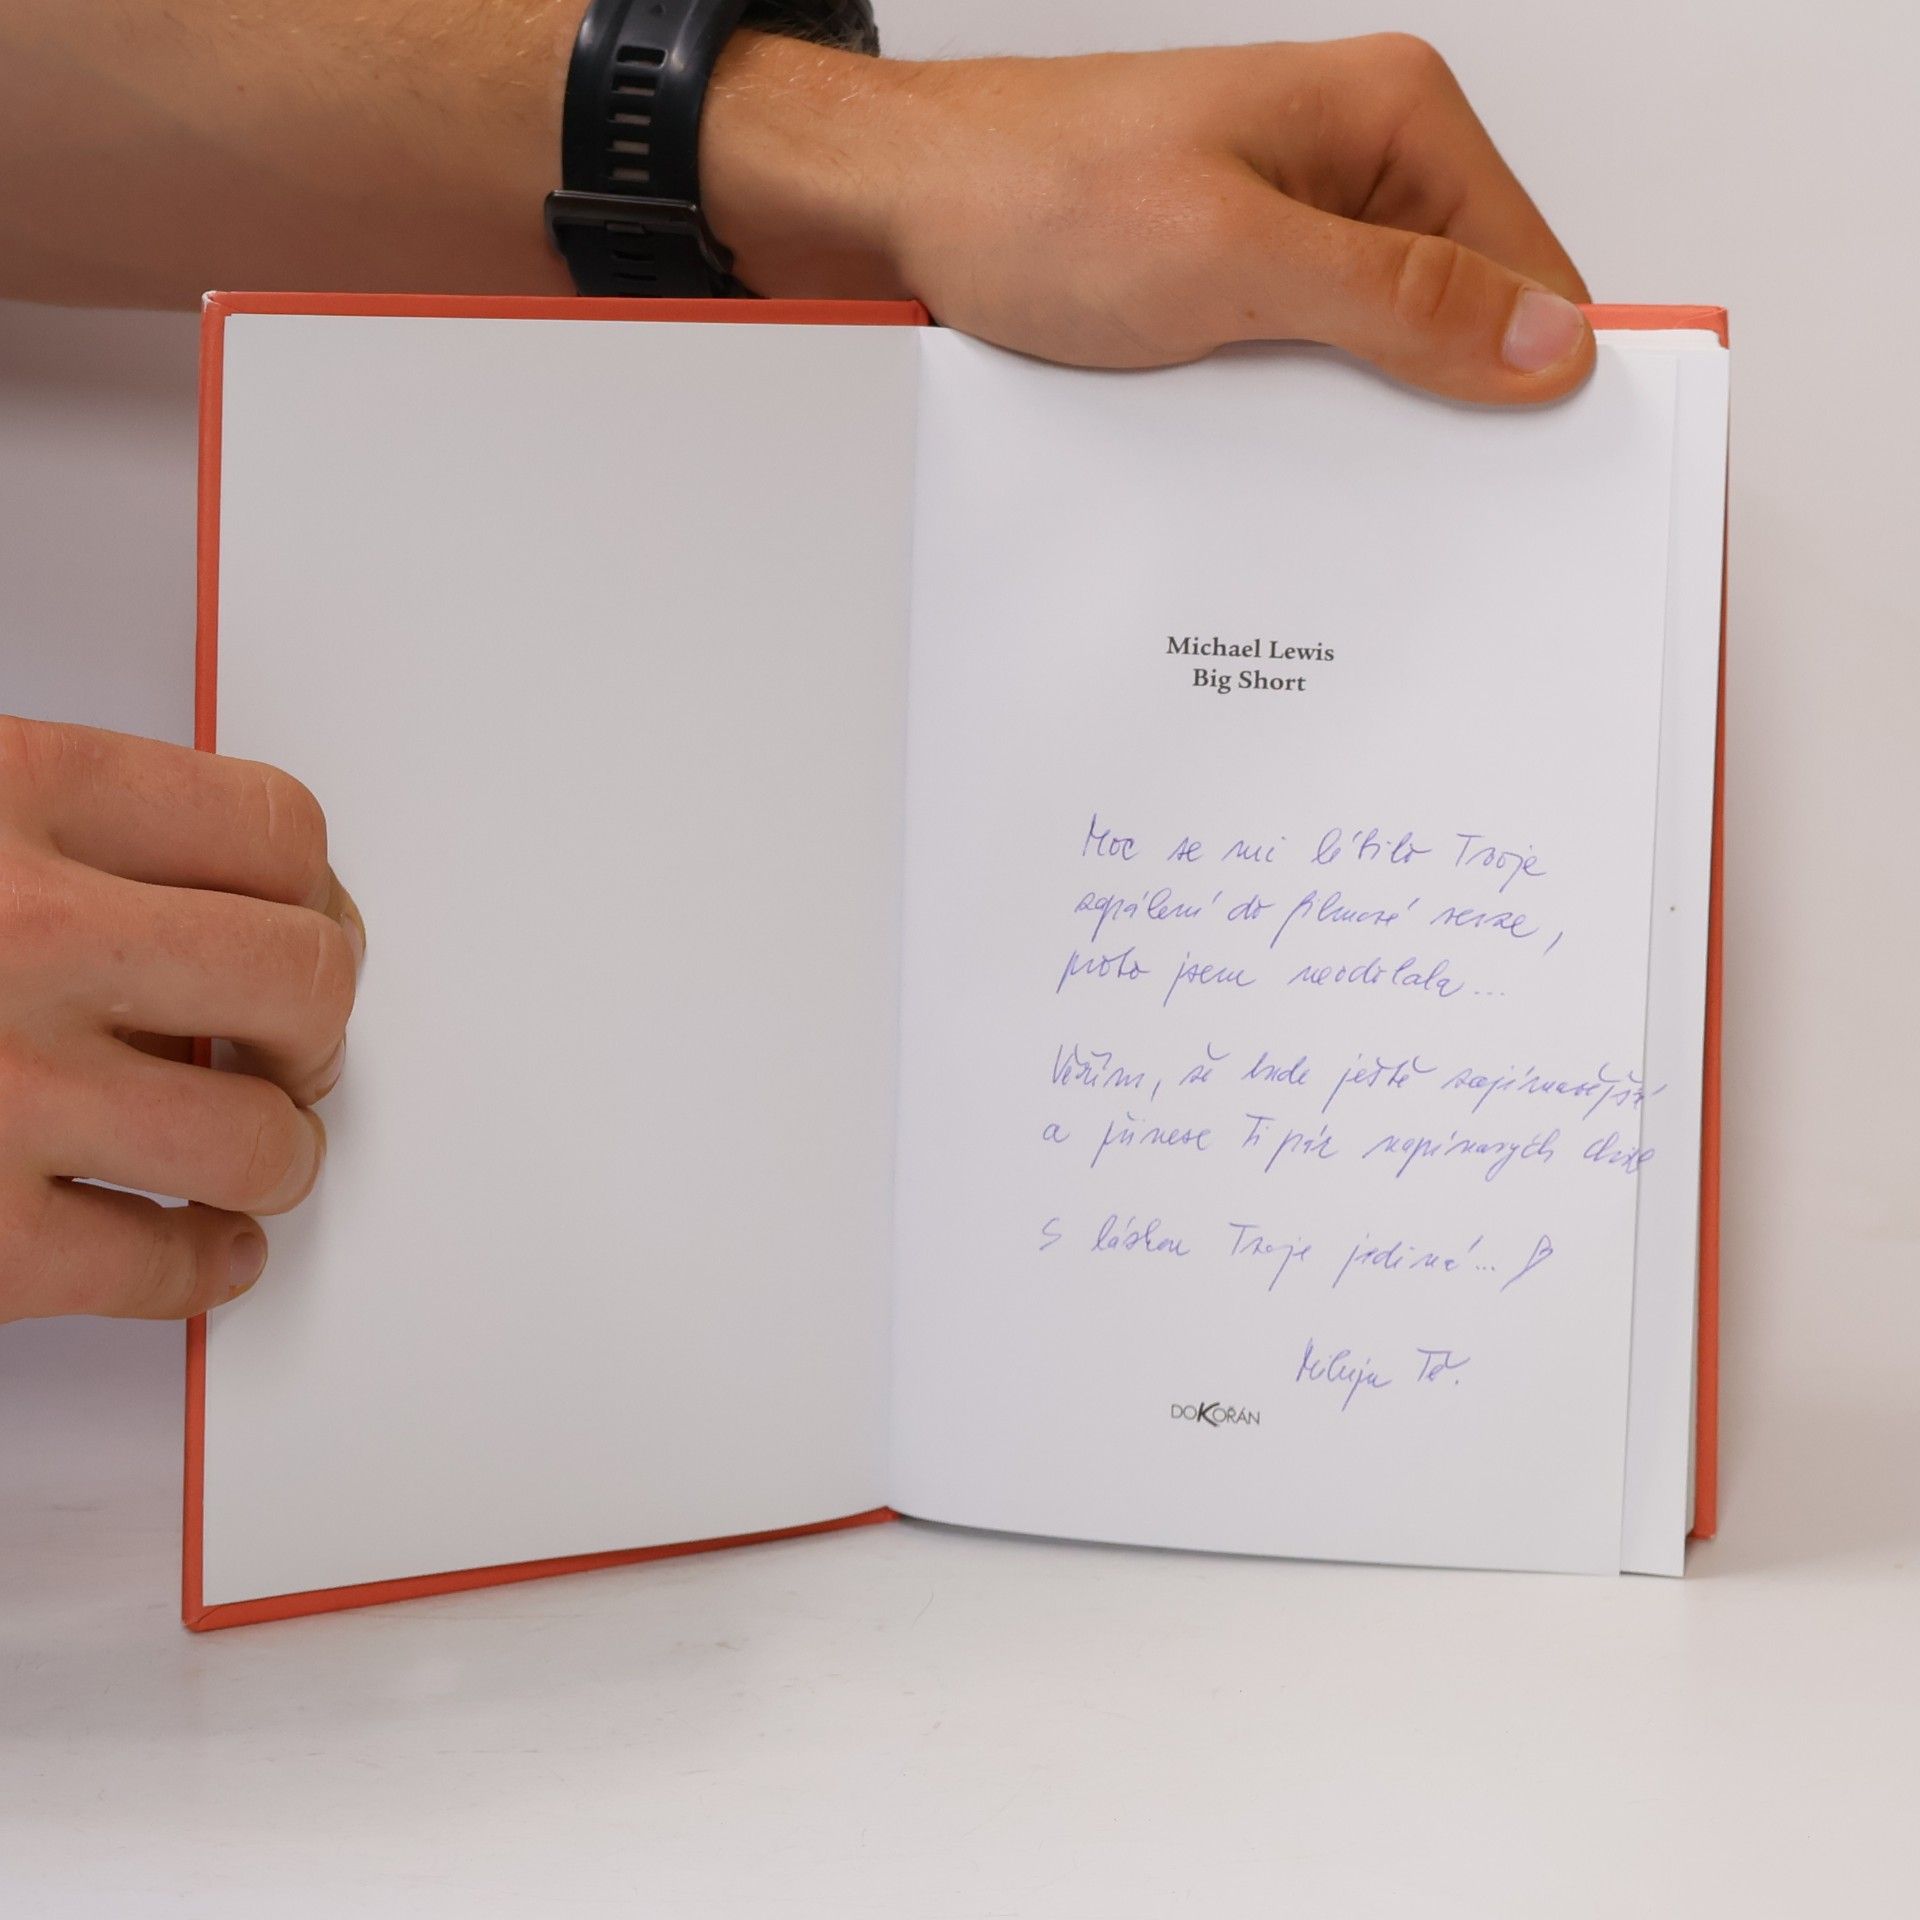 Michael Lewis
Big Short
Moc se mi líbilo Tvoje
zapálení do filmové verze,
proto jsem neodolala...
Věřím, že bude ještě zajímavější
a přinese Ti pár napínavých chvil
S láskou Tvoje jediná...
Miluju Tě.
DOKOŘÁN